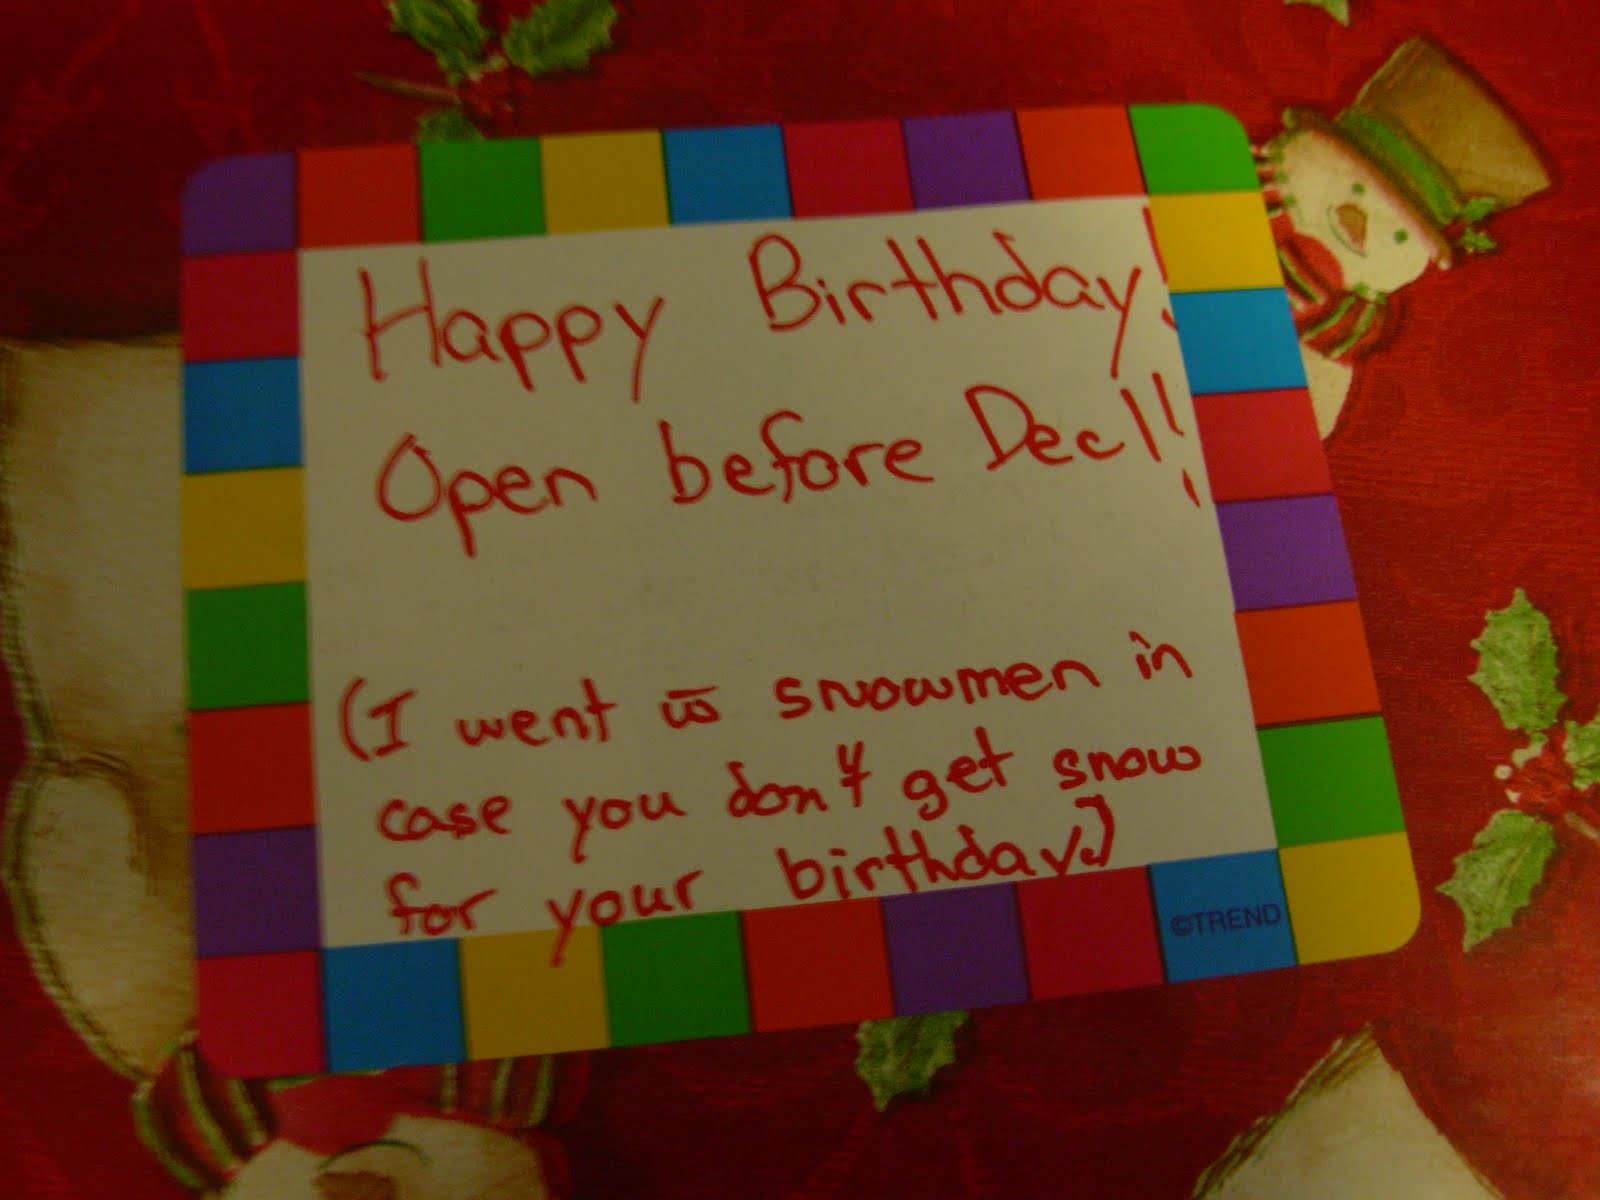 Happy Birthday!
Open before Dec 1!
(I went w snowmen in
case you don't get snow
for your birthday.)
©TREND